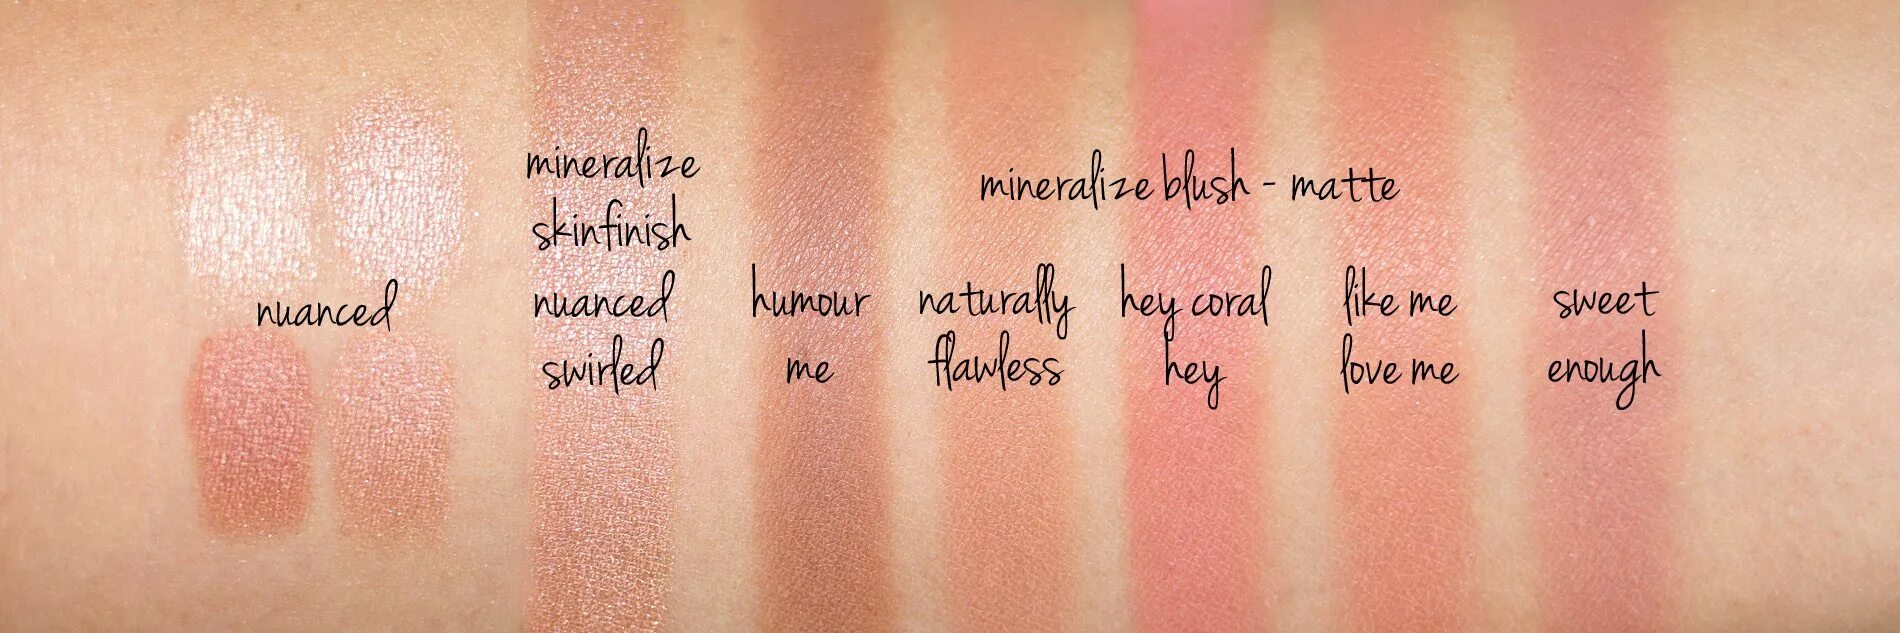 nuanced
mineralize
skinfinish
nuanced
swirled
mineralize blush - matte
humour
me
naturally
flawless
hey coral
hey
like me
love me
sweet
enough